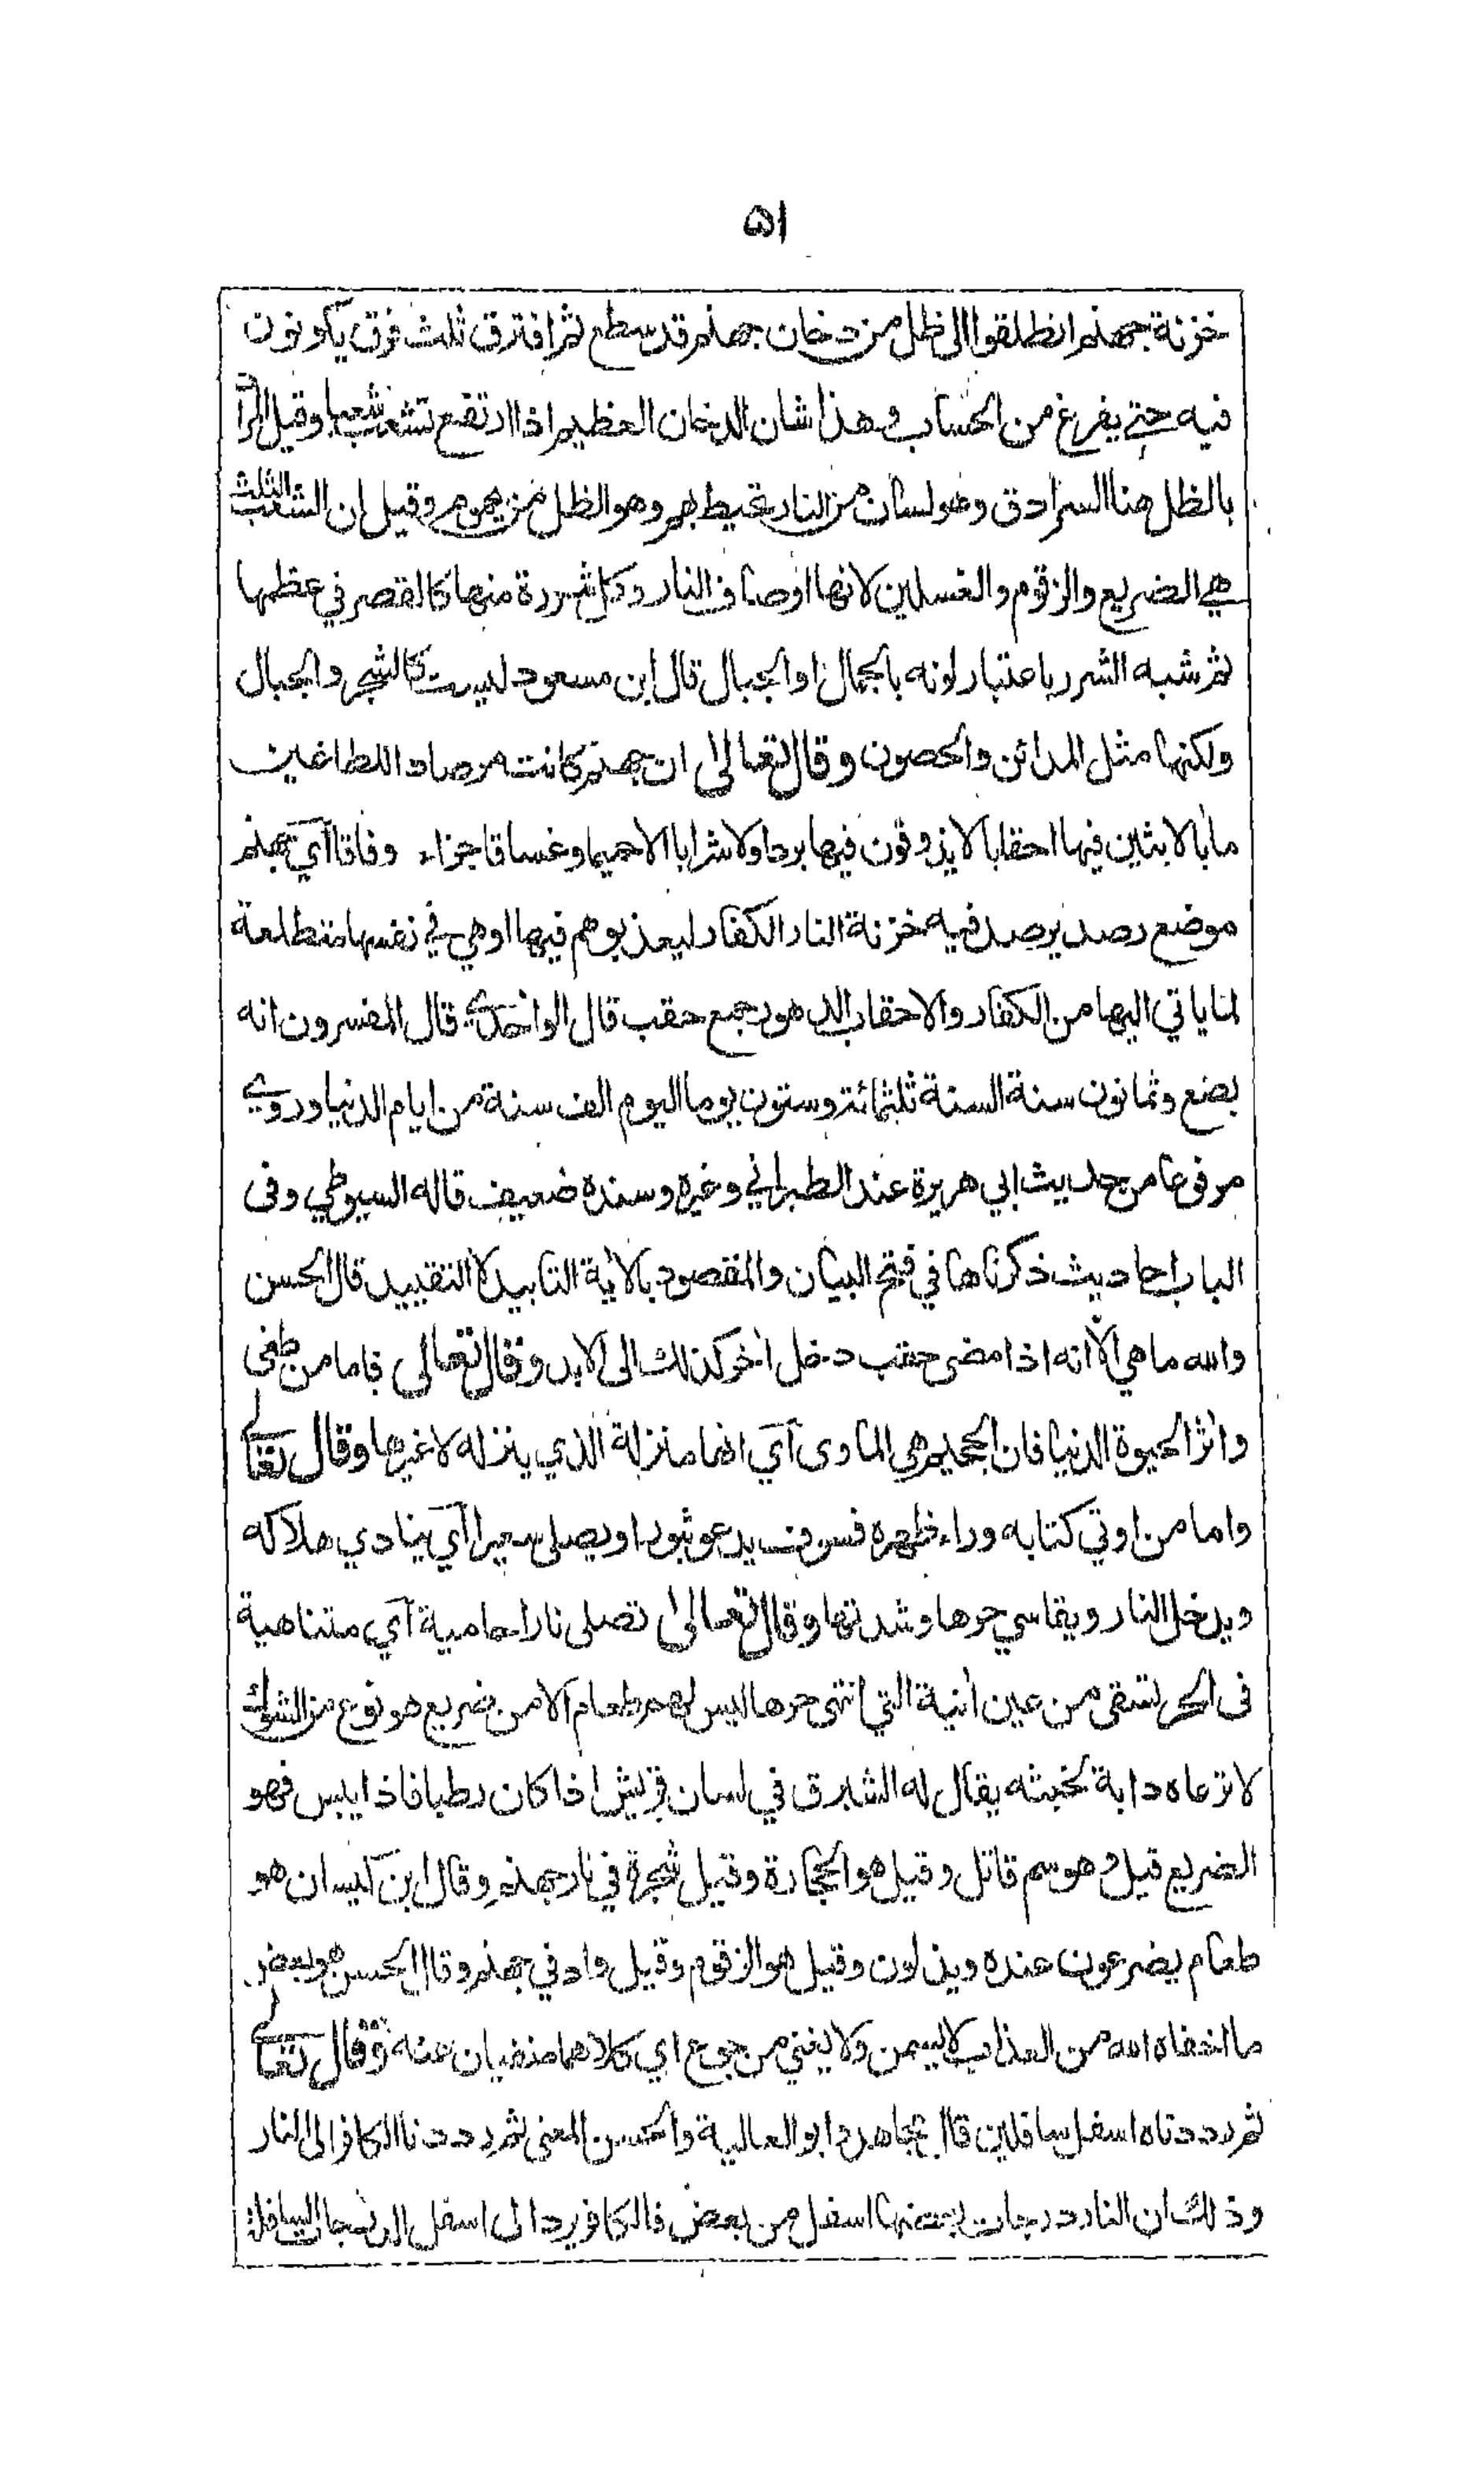 ٥١
خزنة جهنم انطلقوا الى ظل من دخان جهنم قد سطع ثم افترق ثلث فرق يكونون
فيه حتى يفرغ من الحساب وهذا شان الدخان العظيم اذا ارتفع تشعب شعبا وقيل المراد
بالظل هنا السرادق وهو لسان من النار تحيط بهم وهو الظل من يحموم وقيل ان الشعب الثلث
هي الضريع والزقوم والغسلين لانها اوصاف النار وكل شررة منها كالقصر في عظمها
ثم شبه الشرر باعتبار لونه بالجمال او الجبال قال ابن مسعود ليست كالشجر والجبال
ولكنها مثل المدائن والحصون وقال تعالى ان جهنم كانت مرصادا للطاغين
مابا لابثين فيها احقابا لا يذوقون فيها بردا ولا شرابا الا حميما وغساقا جزاء وفاقا اي جهنم
موضع رصد يرصد فيه خزنة النار الكفار ليعذبوهم فيها او هي في نفسها متطلعة
لما ياتي اليها من الكفار والاحقاب الدهور جمع حقب قال الواحدي قال المفسرون انه
بضع وثمانون سنة السنة ثلثمائة وستون يوما اليوم الف سنة من ايام الدنيا وروي
مرفوعا من حديث ابي هريرة عند الطبراني وغيره وسنده ضعيف قاله السيوطي وفى
الباب احاديث ذكرناها في فتح البيان والمقصود بالأية التابيد لا التقييد قال الحسن
والله ما هي الا انه اذا مضى حقب دخل أخر كذلك الى الابد وقال تعالى فاما من طغى
وأثر الحيوة الدنيا فان الجحيم هي الماوى اي انها منزلة الذي ينزله لا غيرها وقال تعالى
واما من اوتي كتابه وراء ظهره فسوف يدعو ثبورا ويصلى سعيرا اي ينادي هلاكه
ويدخل النار ويقاسي حرها وشدتها وقال تعالى تصلى نارا حامية اي متناهية
فى الحر تسقى من عين أنية التي انتهى حرها ليس لهم طعام الا من ضريع هو نوع من الشوك
لا ترعاه دابة لخبثه يقال له الشبرق في لسان قريش اذا كان رطبا فاذا يبس فهو
الضريع قيل وهو سم قاتل وقيل هو الحجارة وقيل شجرة في نار جهنم وقال ابن كيسان هو
طعام يضرعون عنده ويذلون وقيل هو الزقوم وقيل واد في جهنم وقال الحسن هو بعض
ما اخفاه الله من العذاب لا يسمن ولا يغني من جوع اي كلاهما منفيان عنه وقال تعالى
ثم رددناه اسفل سافلين قال مجاهد وابو العالية والحسن المعنى ثم رددنا الكافر الى النار
وذلك ان النار درجات بعضها اسفل من بعض فالكافر يرد الى اسفل الدرجات السافلة